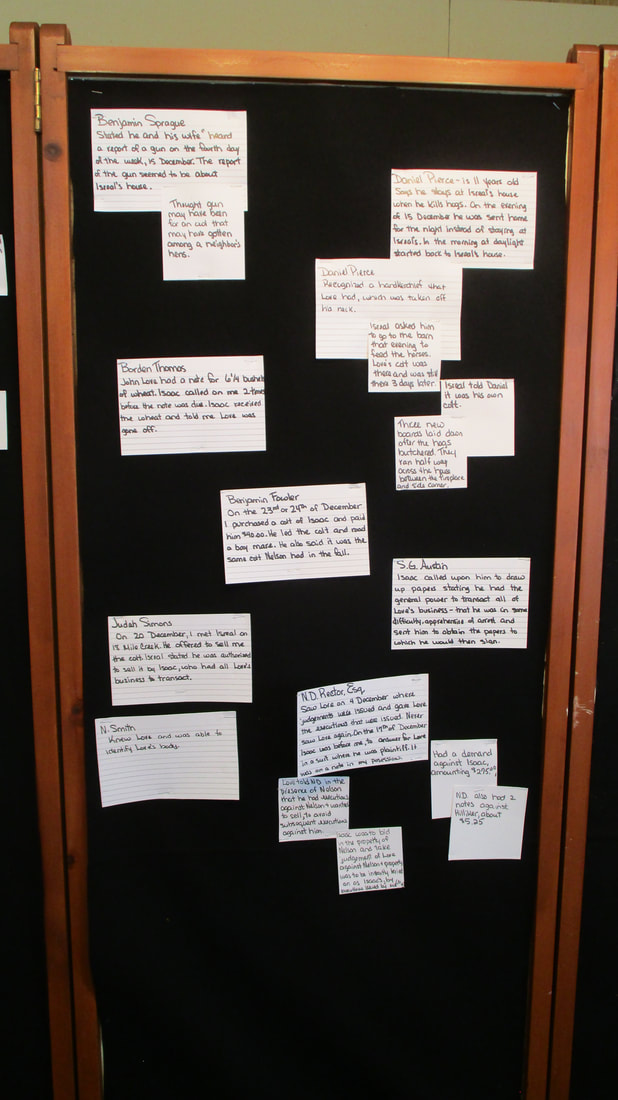 Benjamin Sprague
Stated he and his wife "heard
a report of a gun on the fourth day
of the week, 15 December. The report
of the gun seemed to be about
Isreal's house.
Thought gun
may have been
for an owl that
may have gotten
among a neighbor's
hens.
Daniel Pierce - is 11 years old
Says he stays at Isreal's house
when he kills hogs. On the evening
of 15 December he was sent home
for the night instead of staying at
Isreal's. In the morning at daylight
started back to Isreal's house.
Daniel Pierce
Recognized a handkerchief what
Love had, which was taken off
his neck.
Isreal asked him
to go to the barn
that evening to
feed the horses.
Love's colt was
there and was still
there 3 days later.
Isreal told Daniel
it was his own
colt.
Three new
boards laid down
after the hogs
butchered. They
ran half way
across the house
between the fireplace
and side corner.
Borden Thomas
John Love had a note for 6 1/4 bushels
of wheat. Isaac called on me 2 times
before the note was due. Isaac received
the wheat and told me Love was
gone off.
Benjamin Fowler
On the 23rd or 24th of December
I purchased a colt of Isaac and paid
him $40.00. He led the colt and road
a boy mare. He also said it was the
same colt Nelson had in the fall.
S.G. Austin
Isaac called upon him to draw
up papers stating he had the
general power to transact all of
Love's business - that he was in some
difficulty, apprehensive of arrest and
sent him to obtain the papers to
which he would then sign.
Judah Simons
On 20 December, I met Isreal on
18 Mile Creek. He offered to sell me
the colt. Isreal stated he was authorized
to sell it by Isaac, who had all Love's
business to transact.
N. Smith
Knew Love and was able to
identify Love's body.
N.D. Rector, Esq.
Saw Love on 4 December where
judgements were issued and gave Love
the executions that were issued. Never
saw Love again. On the 19th of December
Isaac was before me, to answer for Love
in a suit where he was plaintiff. It
was on a note in my possession.
Had a demand
against Isaac,
amounting
N.D. also had 2
notes against
Hilliker, about
$5.25
Love told N.D. in the
presence of Nelson
that he had executions
against Nelson & wanted
to sell, to avoid
subsequent executions
against him.
Isaac was to bid
in the property of
Nelson and take
judgement of Love
against Nelson & property
was to be
on as Isaac's, by
executions issued by